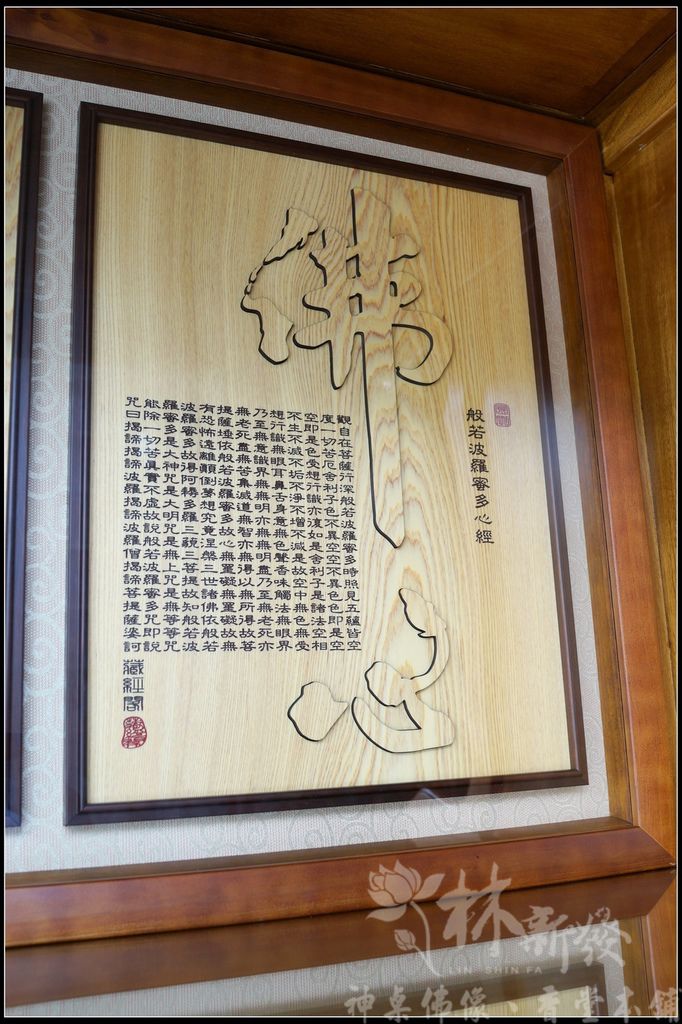 佛心
般若波羅蜜多心經
觀自在菩薩行深般若波羅蜜多時照見五蘊皆空
度一切苦厄舍利子色不異空空不異色色即是空
空即是色受想行識亦復如是舍利子是諸法空相
不生不滅不垢不淨不增不減是故空中無色無受
想行識無眼耳鼻舌身意無色聲香味觸法無眼界
乃至無意識界無無明亦無無明盡乃至無老死亦
無老死盡無苦集滅道無智亦無得以無所得故菩
提薩埵依般若波羅蜜多故心無罣礙無罣礙故無
有恐怖遠離顛倒夢想究竟涅槃三世諸佛依般若
波羅蜜多故得阿耨多羅三藐三菩提故知般若波
羅蜜多是大神咒是大明咒是無上咒是無等等咒
能除一切苦真實不虛故說般若波羅蜜多咒即說
咒曰揭諦揭諦波羅揭諦波羅僧揭諦菩提薩婆訶
藏經閣
林新發
LIN SHIN FA
神桌佛像、香堂本舖